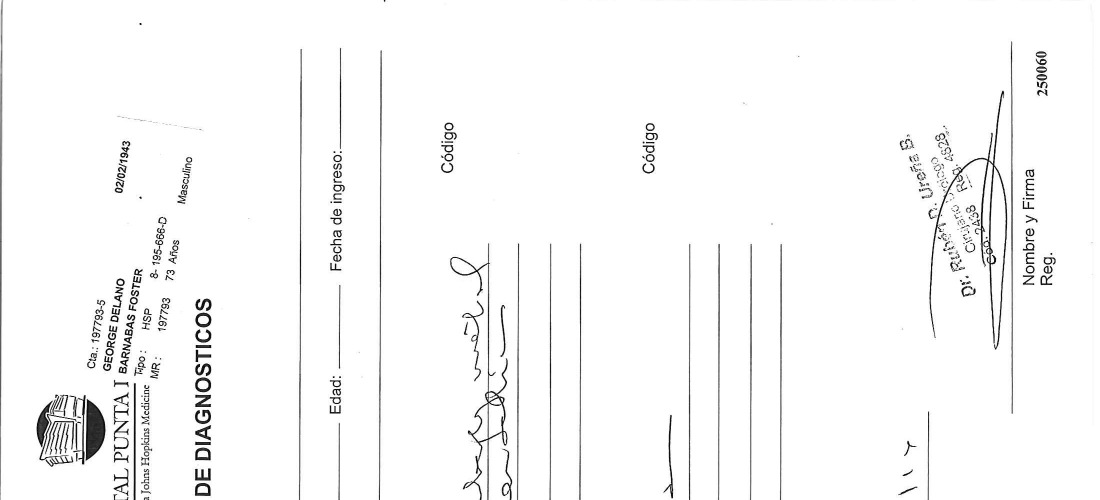 TAL PUNTA
a Johns Hopkins Medicine
Cta.: 197793-5
GEORGE DELANO
BARNABAS FOSTER 02/02/1943
Tipo : HSP 8-195-666-D
MR : 197793 73 Años Masculino
DE DIAGNOSTICOS
Edad: Fecha de ingreso:
Código
Código
Dr. Rubén D. Ureña B.
Cirujano Urólogo
Cod. 2438 Reg. 4828
Nombre y Firma
Reg.
250060